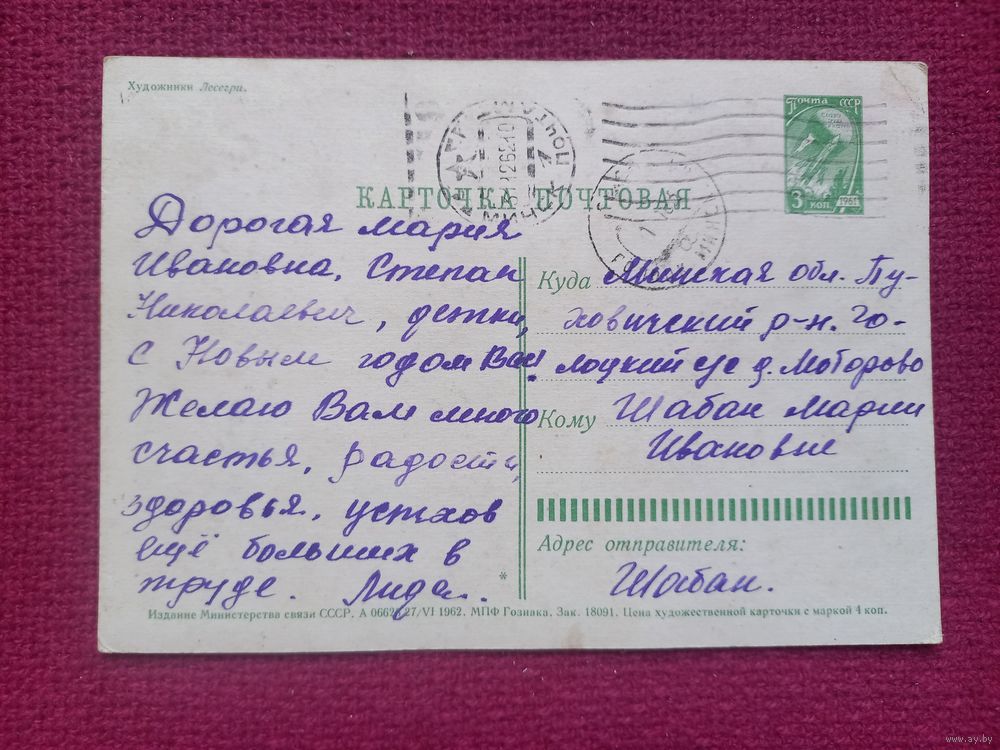 Художники Лесегри.
Почта СССР
3 коп. 1961
КАРТОЧКА ПОЧТОВАЯ
Дорогая Мария
Ивановна, Степан
Николаевич, детки,
С Новым годом Вас!
Желаю Вам много
счастья, радости,
здоровья, успехов
ещё больших в
труде. Лида.
Куда Минская обл. Пу-
ховичский р-н. Го-
лоцкий с/с д. Моторово
Кому Шабан Марии
Ивановне
Адрес отправителя:
Шабан.
*
Издание Министерства связи СССР. А 06628 27/VI 1962. МПФ Гознака. Зак. 18091. Цена художественной карточки с маркой 4 коп.
www.ay.by